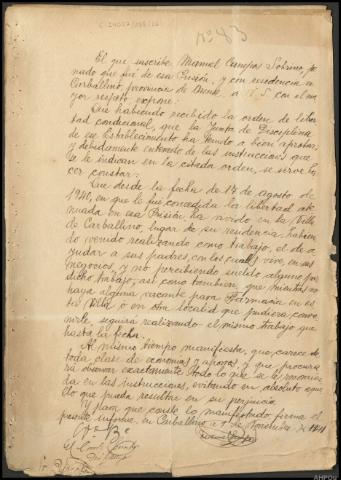 Nº 83
El que suscribe Manuel Campos Sobrino, pe
nado que fué de esa Prisión, y con residencia en
Carballino, provincia de Orense, a V. S. con el ma
yor respeto expone:
Que habiendo recibido la orden de liber
tad condicional, que la Junta de Disciplina
de ese Establecimiento ha tenido a bien aprobar,
y debidamente enterado de las instrucciones que
se le indican en la citada orden, se sirve ha
cer constar:
Que desde la fecha de 17 de agosto de
1940, en que le fué concedida la libertad ate
nuada en esa Prisión, ha vivido en la Villa
de Carballino, lugar de su residencia, habien
do venido realizando como trabajo, el de a
yudar a sus padres, con los cuales vive, en sus
negocios, y no percibiendo sueldo alguno por
dicho trabajo; así como tambien que mientras no
haya alguna vacante para Farmacia en es
ta Villa, o en otra localidad que pudiera conve
nirle, seguirá realizando el mismo trabajo que
hasta la fecha.
Al mismo tiempo manifiesta, que carece de
toda clase de economías y ahorros, y que, procura
rá observar exactamente todo lo que se le recomien
da en las instrucciones, evitando en absoluto aque
llo que pueda resultar en su perjuicio.
Y para que conste lo manifestado firma el
presente informe, en Carballino a 1 de Noviembre de 1941
Vº Bº
AHPOu